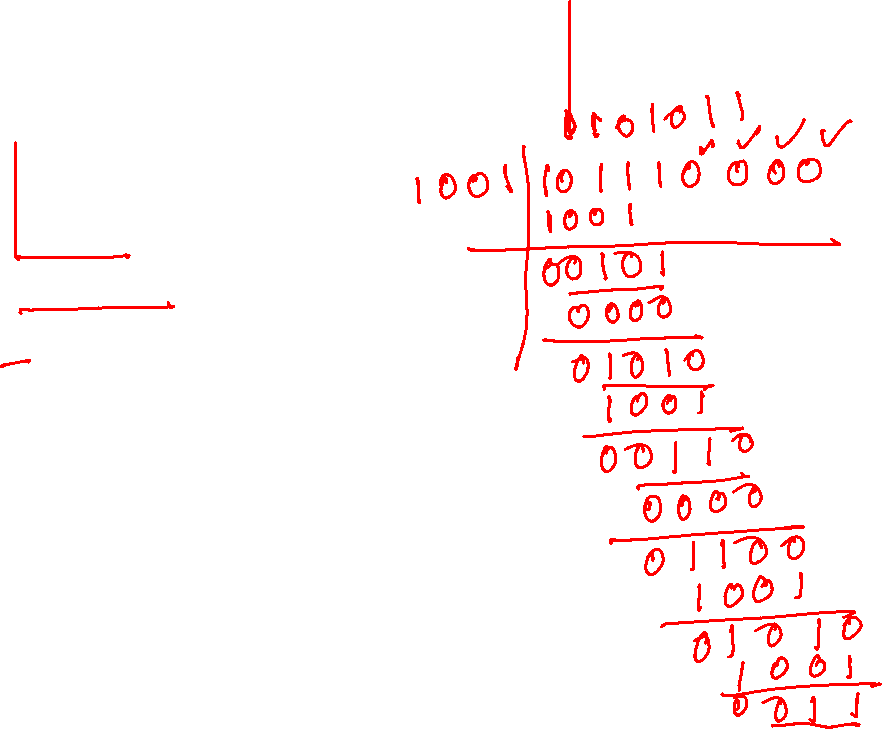 1 0 1 0 1 1
1 0 0 1 1 0 1 1 1 0 0 0 0
1 0 0 1
0 0 1 0 1
0 0 0 0
0 1 0 1 0
1 0 0 1
0 0 1 1 0
0 0 0 0
0 1 1 0 0
1 0 0 1
0 1 0 1 0
1 0 0 1
0 0 1 1